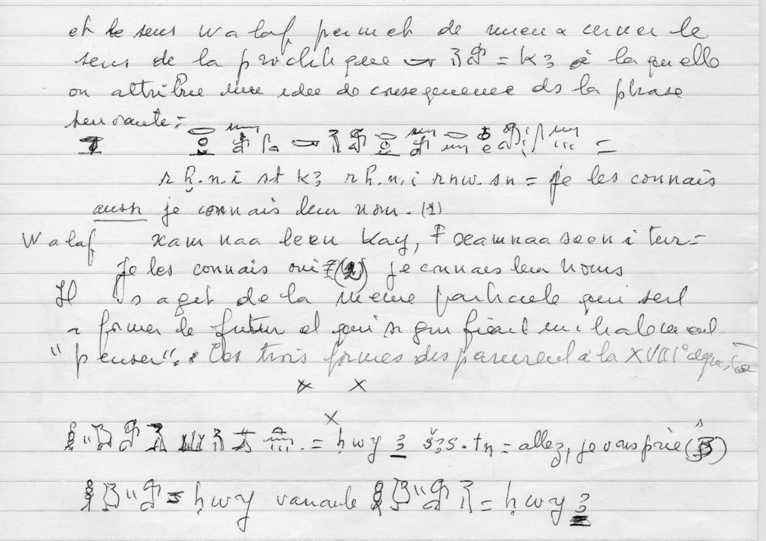 et le sens walaf permet de mieux cerner le
sens de la proclitique = k3 à laquelle
on attribue une idée de conséquence ds la phrase
suivante :
=
r ḫ.n.i st k3 rḫ.n.i rnw.sn = je les connais
aussi je connais leur nom. (1)
Walaf xam naa leen kay, xamnaa seen i tur =
je les connais oui (2) je connais leur noms
Il s'agit de la même particule qui sert
a former le futur et qui signifiait
"penser". Ces trois formes disparurent à la XVIII°
x x
x
= ḥwy 3 š3s.tn = allez, je vous prie (3)
= ḥwy variante = ḥwy 3